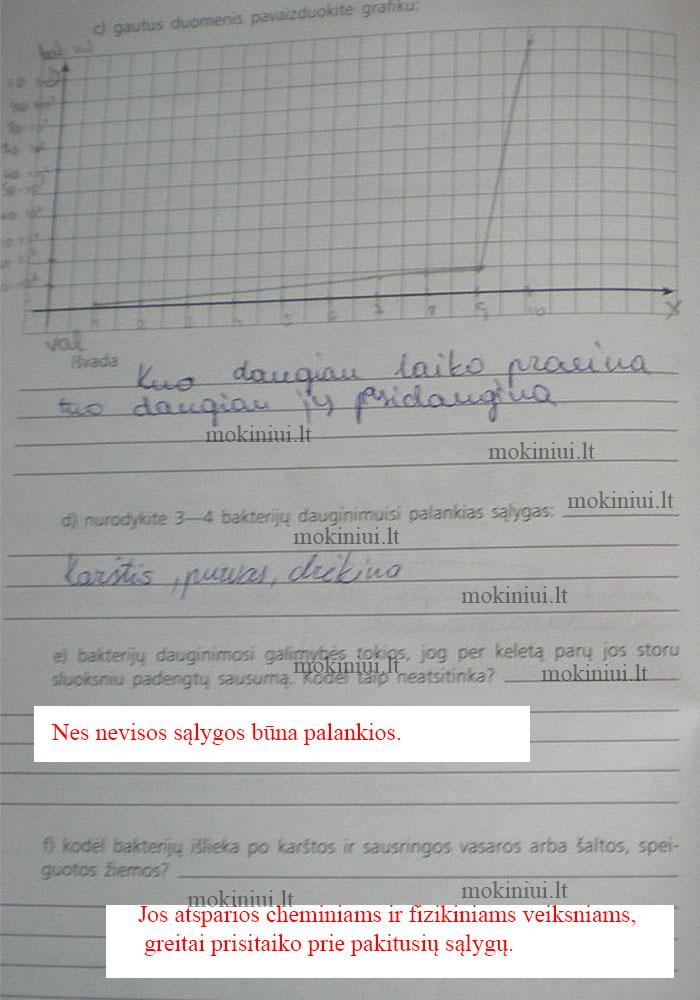 c) gautus duomenis pavaizduokite grafiku:
1 2 3 4 5 6 7 8 9 10 X
val
Išvada Kuo daugiau laiko praeina
tuo daugiau jų prsidaugina
mokiniui.lt
mokiniui.lt
mokiniui.lt
d) nurodykite 3—4 bakterijų dauginimuisi palankias sąlygas:
mokiniui.lt
karštis, purvas, drėkina
mokiniui.lt
e) bakterijų dauginimosi galimybės tokios, jog per keletą parų jos storu
mokiniui.lt
sluoksniu padengtų sausumą. Kodėl taip neatsitinka?
mokiniui.lt
Nes nevisos sąlygos būna palankios.
f) kodėl bakterijų išlieka po karštos ir sausringos vasaros arba šaltos, spei-
guotos žiemos?
mokiniui.lt
mokiniui.lt
Jos atsparios cheminiams ir fizikiniams veiksniams,
greitai prisitaiko prie pakitusių sąlygų.